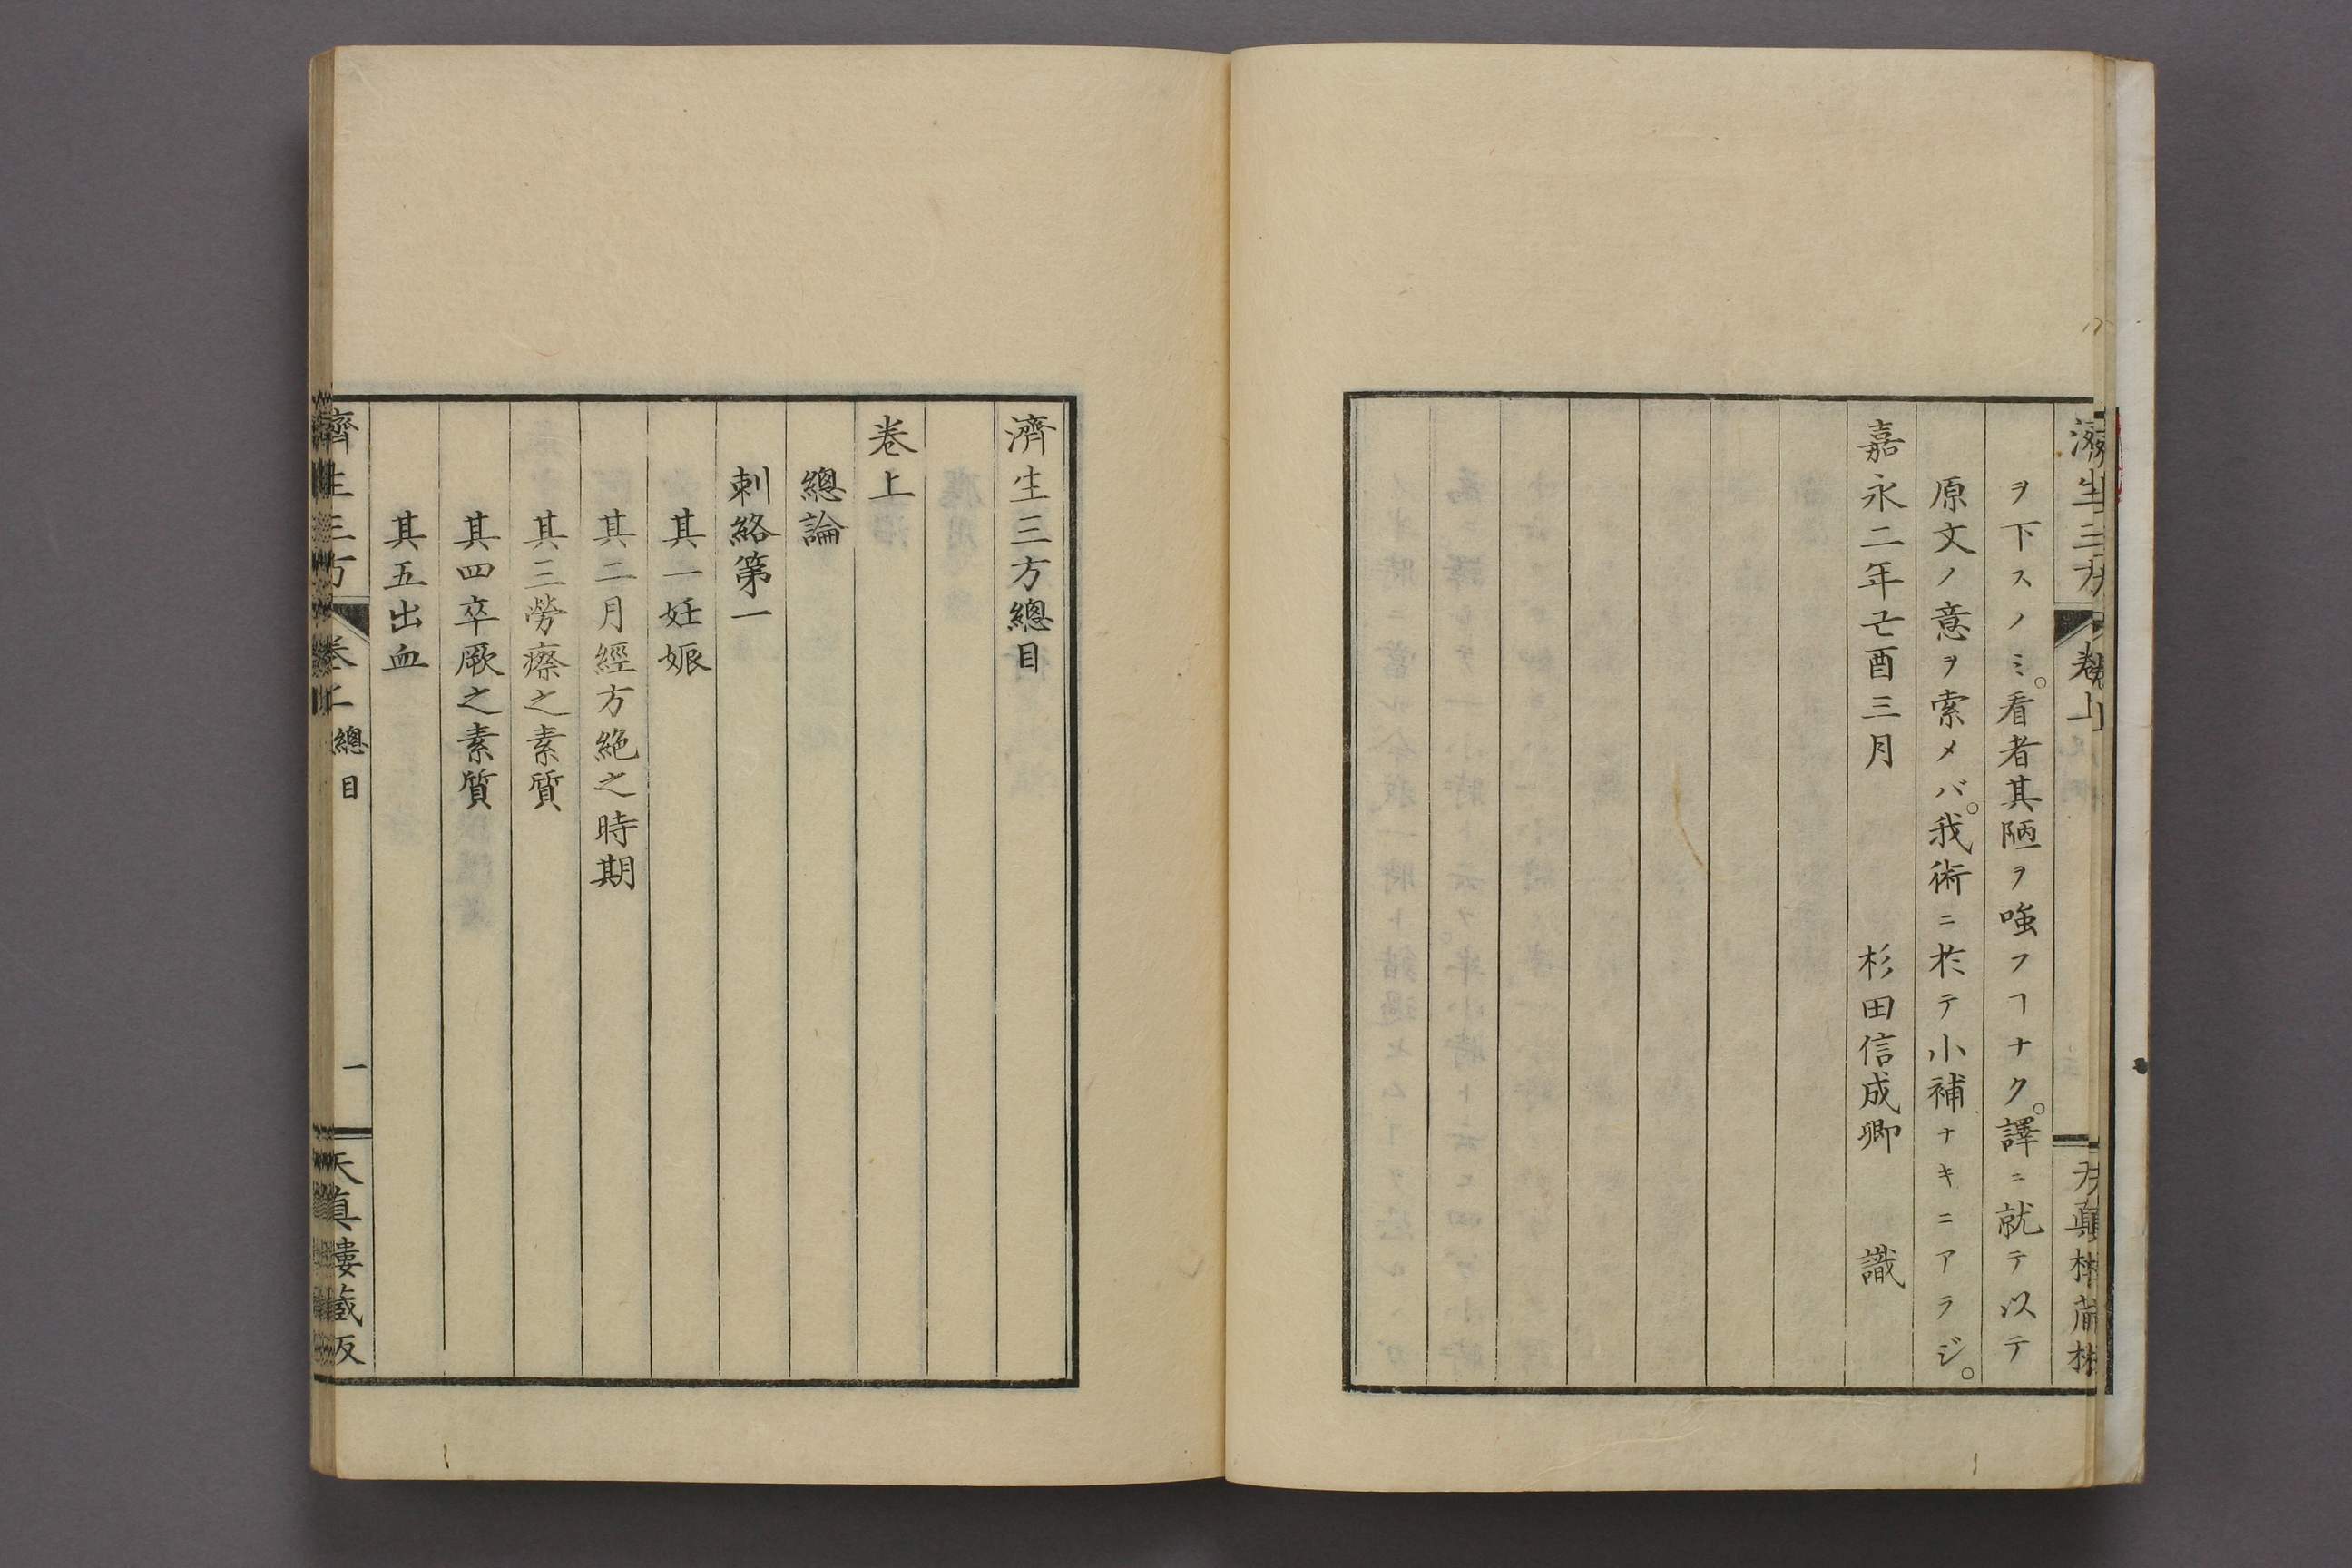 ヲ下スノミ。看者其陋ヲ嗤フヿナク。譯ニ就テ以テ
原文ノ意ヲ索メバ。我術ニ於テ小補ナキニアラジ。
嘉永二年己酉三月　杉田信成卿　識
濟生三方總目
卷上
總論
刺絡第一
其一妊娠
其二月經方絶之時期
其三勞瘵之素質
其四卒厥之素質
其五出血
濟生三方　卷上　總目　一　天真樓藏版